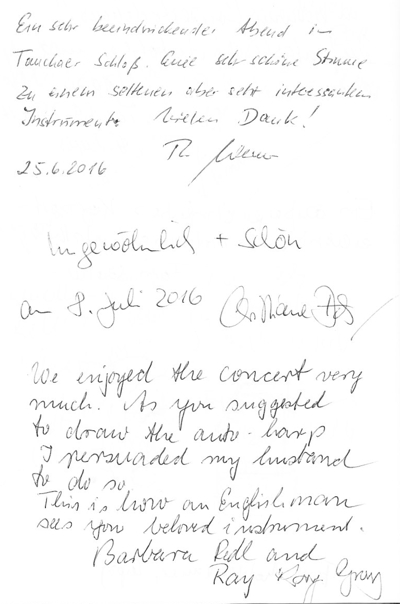 Ein sehr beeindruckender Abend im
Tauchaer Schloß. Eine sehr schöne Stimme
zu einem seltenen aber sehr interessanten
Instrument. Vielen Dank!
Th.
25.6.2016
Ungewöhnlich + schön
am 8. Juli 2016
We enjoyed the concert very
much. As you suggested
to draw the auto-harp
I persuaded my husband
to do so.
This is how an Englishman
sees you beloved instrument.
Barbara and
Ray Gray